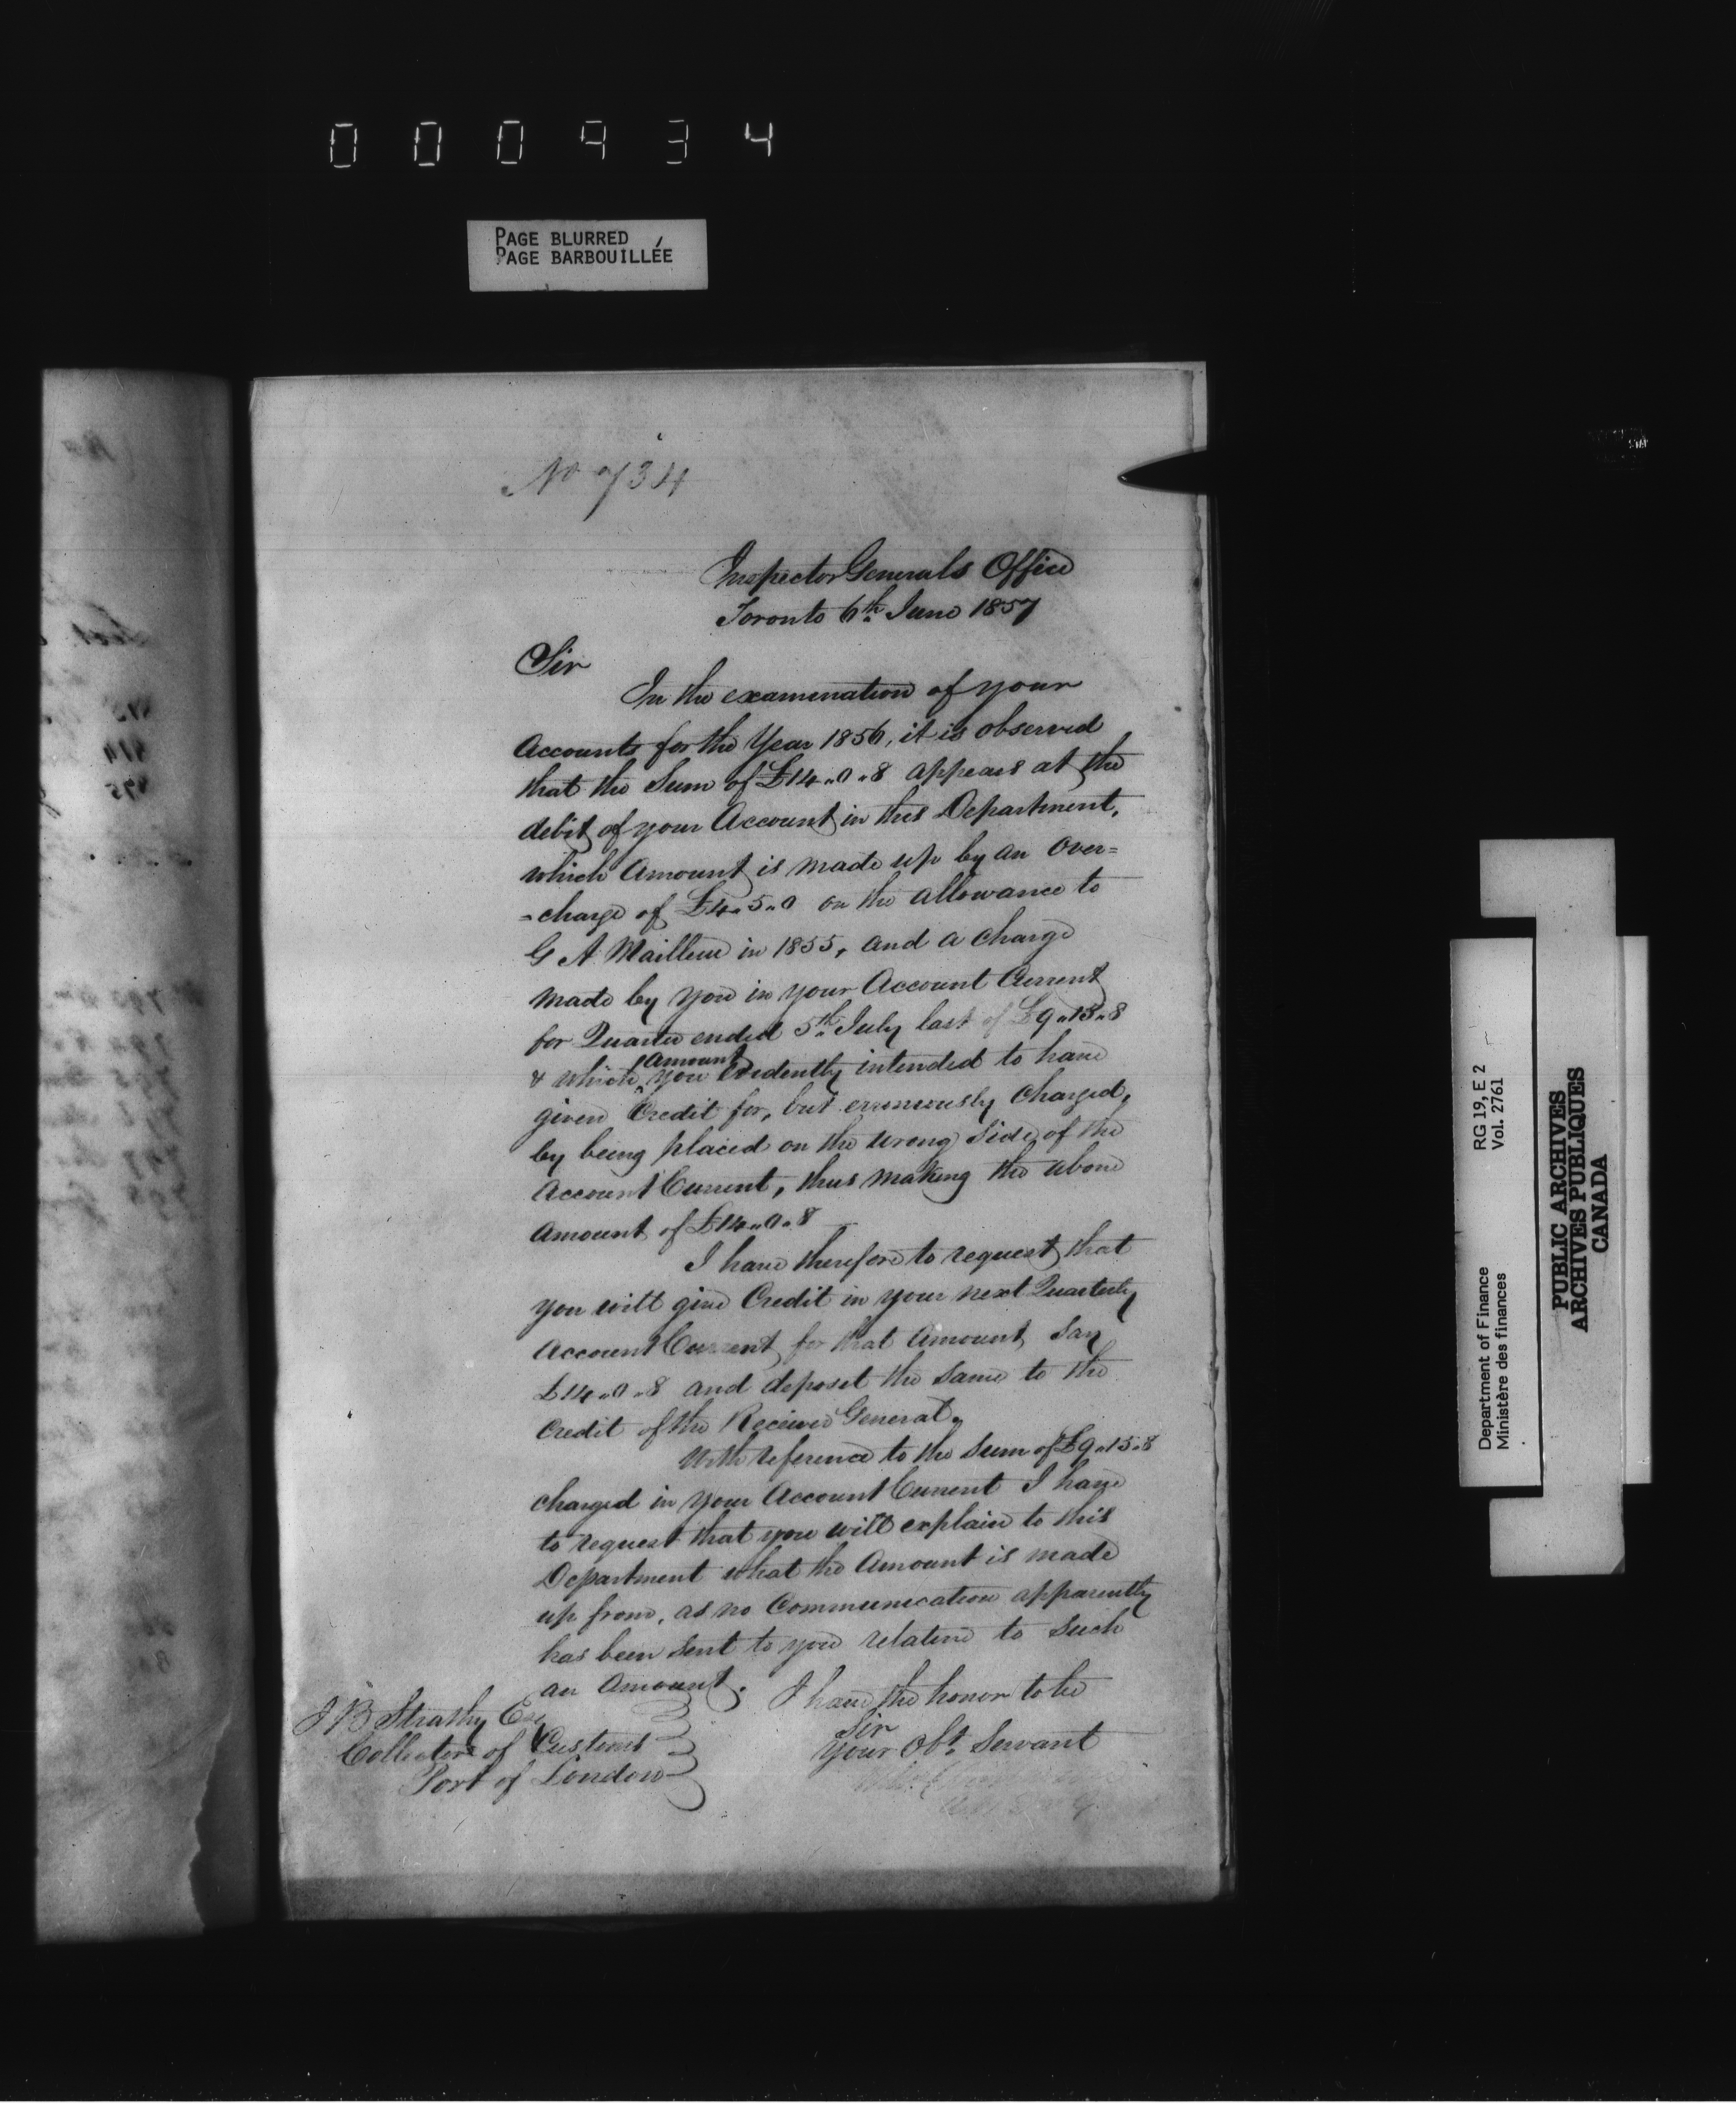 000934
PAGE BLURRED
PAGE BARBOUILLÉE
No 734
Inspector Generals Office
Toronto 6th June 1857
Sir
In the examination of your
Accounts for the Year 1856, it is observed
that the Sum of £14.0.8 appears at the
debit of your Account in this Department,
which Amount is made up by an Over=
=charge of £4.5.0 on the allowance to
G A Mailleue in 1855, and a charge
made by you in your Account Current
for Quarter ended 5th July last of £9.15.8
& which Amount you evidently intended to have
given Credit for, but erroneously charged,
by being placed on the wrong side of the
Account Current, thus making the above
Amount of £14.0.8
I have therefore to request that
you will give Credit in your next Quarterly
Account Current for that Amount say
£14.0.8 and deposit the same to the
Credit of the Receiver General.
With reference to the sum of £9.15.8
charged in your Account Current I have
to request that you will explain to this
Department what the Amount is made
up from, as no Communication apparently
has been sent to you relative to such
an Amount. I have the honor to be
Sir
Your Obt. Servant
J B Strathy Esq
Collector of Customs
Port of London
RG 19, E 2
Vol. 2761
Department of Finance
Ministère des finances
PUBLIC ARCHIVES
ARCHIVES PUBLIQUES
CANADA